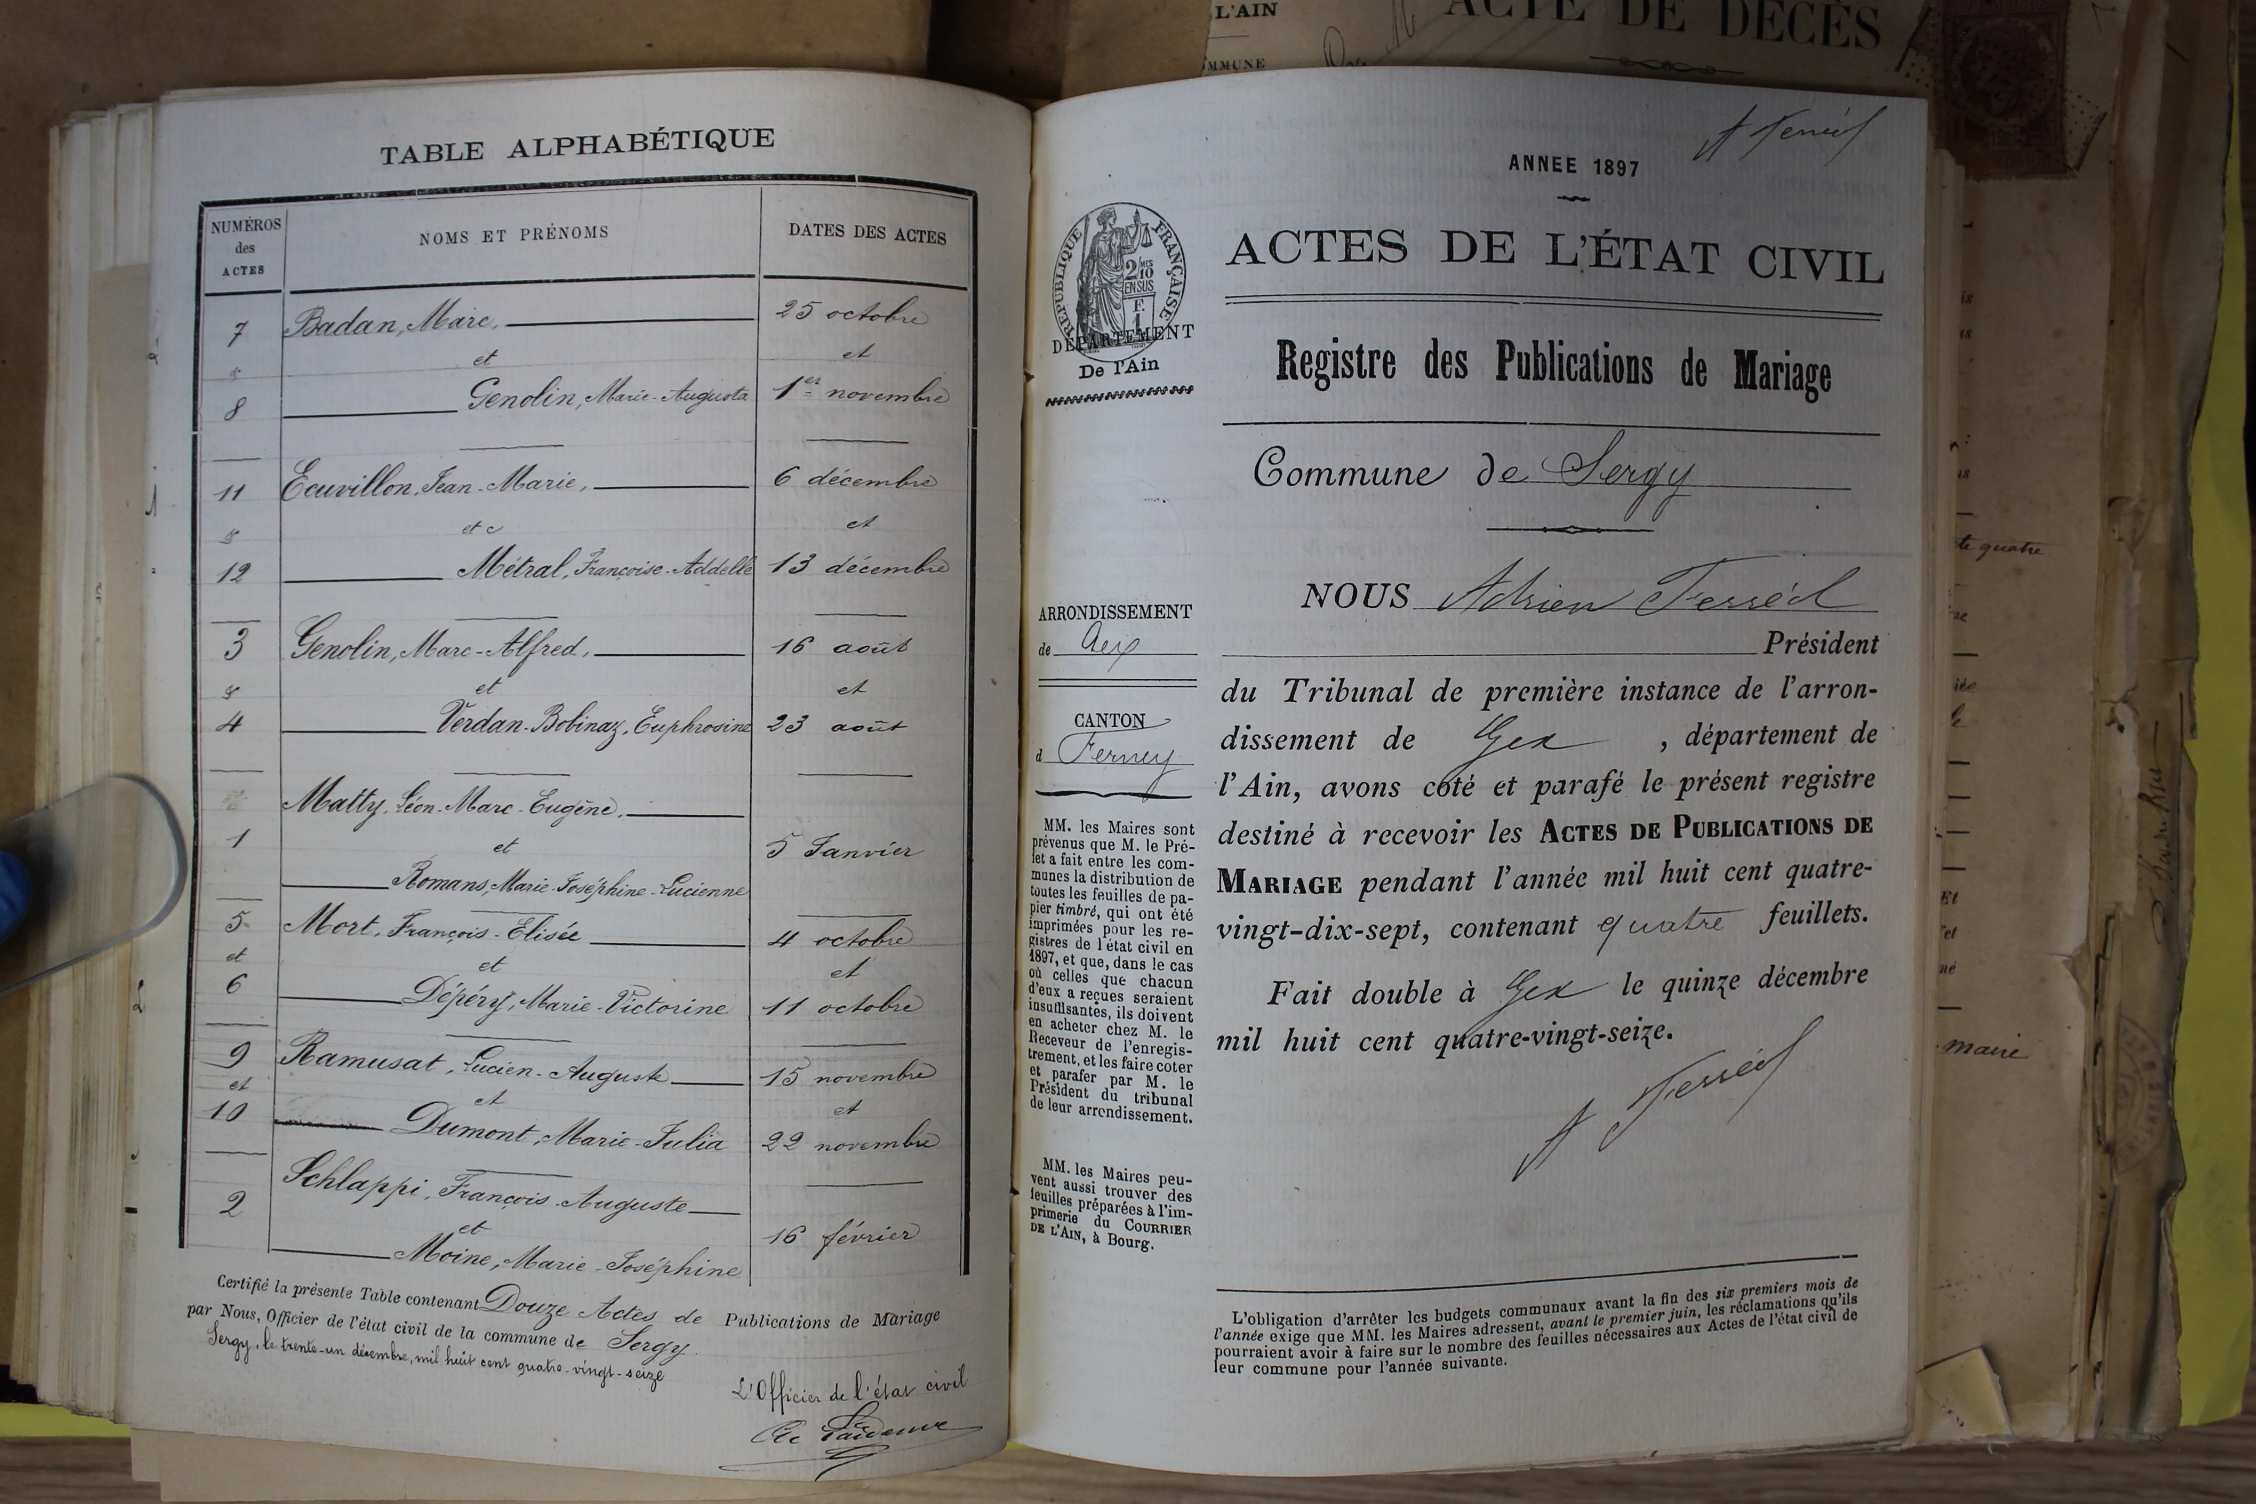 L'AIN
ACTE DE DÉCÈS
TABLE ALPHABÉTIQUE
NUMÉROS des ACTES
NOMS ET PRÉNOMS
DATES DES ACTES
7 Badan, Marc, 25 octobre
& et et
8 Genolin, Marie-Augusta 1er novembre
11 Ecuvillon, Jean-Marie, 6 décembre
& et et
12 Métral, Françoise-Addelle 13 décembre
3 Genolin, Marc-Alfred, 16 août
& et et
4 Verdan-Bobinaz, Euphrosine 23 août
Matty, Léon-Marc-Eugène,
1 et 5 Janvier
Romans, Marie-Joséphine-Lucienne
5 Mort, François-Elisée 4 octobre
et et et
6 Dépéry, Marie-Victorine 11 octobre
9 Ramusat, Lucien-Auguste 15 novembre
et et et
10 Dumont, Marie-Julia 22 novembre
Schlappi, François-Auguste
2 et 16 février
Moine, Marie-Joséphine
Certifié la présente Table contenant Douze Actes de Publications de Mariage
par Nous, Officier de l'état civil de la commune de Sergy.
Sergy, le trente-un décembre, mil huit cent quatre-vingt-seize
L'Officier de l'état civil
ANNEE 1897
ACTES DE L'ÉTAT CIVIL
RÉPUBLIQUE FRANÇAISE
2/10 MES
EN SUS
F. 1
DÉPARTEMENT
De l'Ain
Registre des Publications de Mariage
Commune de Sergy
ARRONDISSEMENT
de Gex
CANTON
d Ferney
MM. les Maires sont
prévenus que M. le Pré-
fet a fait entre les com-
munes la distribution de
toutes les feuilles de pa-
pier timbré, qui ont été
imprimées pour les re-
gistres de l'état civil en
1897, et que, dans le cas
où celles que chacun
d'eux a reçues seraient
insuffisantes, ils doivent
en acheter chez M. le
Receveur de l'enregis-
trement, et les faire coter
et parafer par M. le
Président du tribunal
de leur arrondissement.
MM. les Maires peu-
vent aussi trouver des
feuilles préparées à l'im-
primerie du COURRIER
DE L'AIN, à Bourg.
NOUS Adrien Ferréol
Président
du Tribunal de première instance de l'arron-
dissement de Gex, département de
l'Ain, avons coté et parafé le présent registre
destiné à recevoir les ACTES DE PUBLICATIONS DE
MARIAGE pendant l'année mil huit cent quatre-
vingt-dix-sept, contenant quatre feuillets.
Fait double à Gex le quinze décembre
mil huit cent quatre-vingt-seize.
L'obligation d'arrêter les budgets communaux avant la fin des six premiers mois de
l'année exige que MM. les Maires adressent, avant le premier juin, les réclamations qu'ils
pourraient avoir à faire sur le nombre des feuilles nécessaires aux Actes de l'état civil de
leur commune pour l'année suivante.